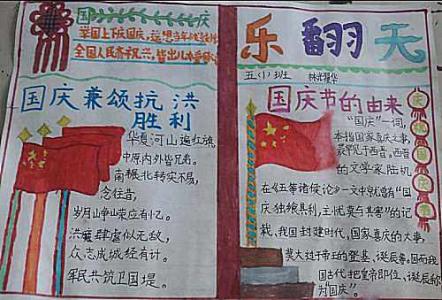 国庆
举国上下庆国庆,
全国人民齐祝
国庆兼颂抗洪
胜利
华夏河山遍红旗,
中原内外皆兄弟。
南粮北转实不易,
念往昔,
岁月峥嵘应有忆。
洪魔肆虐似无敌,
众志成城经有计。
军民共筑卫国堤。
乐翻天
五(1)班
国庆节的由来
“国庆”一词,
本指国家喜庆之事,
最早见于西晋。西晋
的文学家陆机
在《五等诸侯论》一文中就曾有“国
庆独飨其利,主忧莫与其害”的记
载、我国封建时代、国家喜庆的大事,
莫大过于帝王的登基、诞辰
国古代把皇帝即位、诞辰称
为“国庆”。